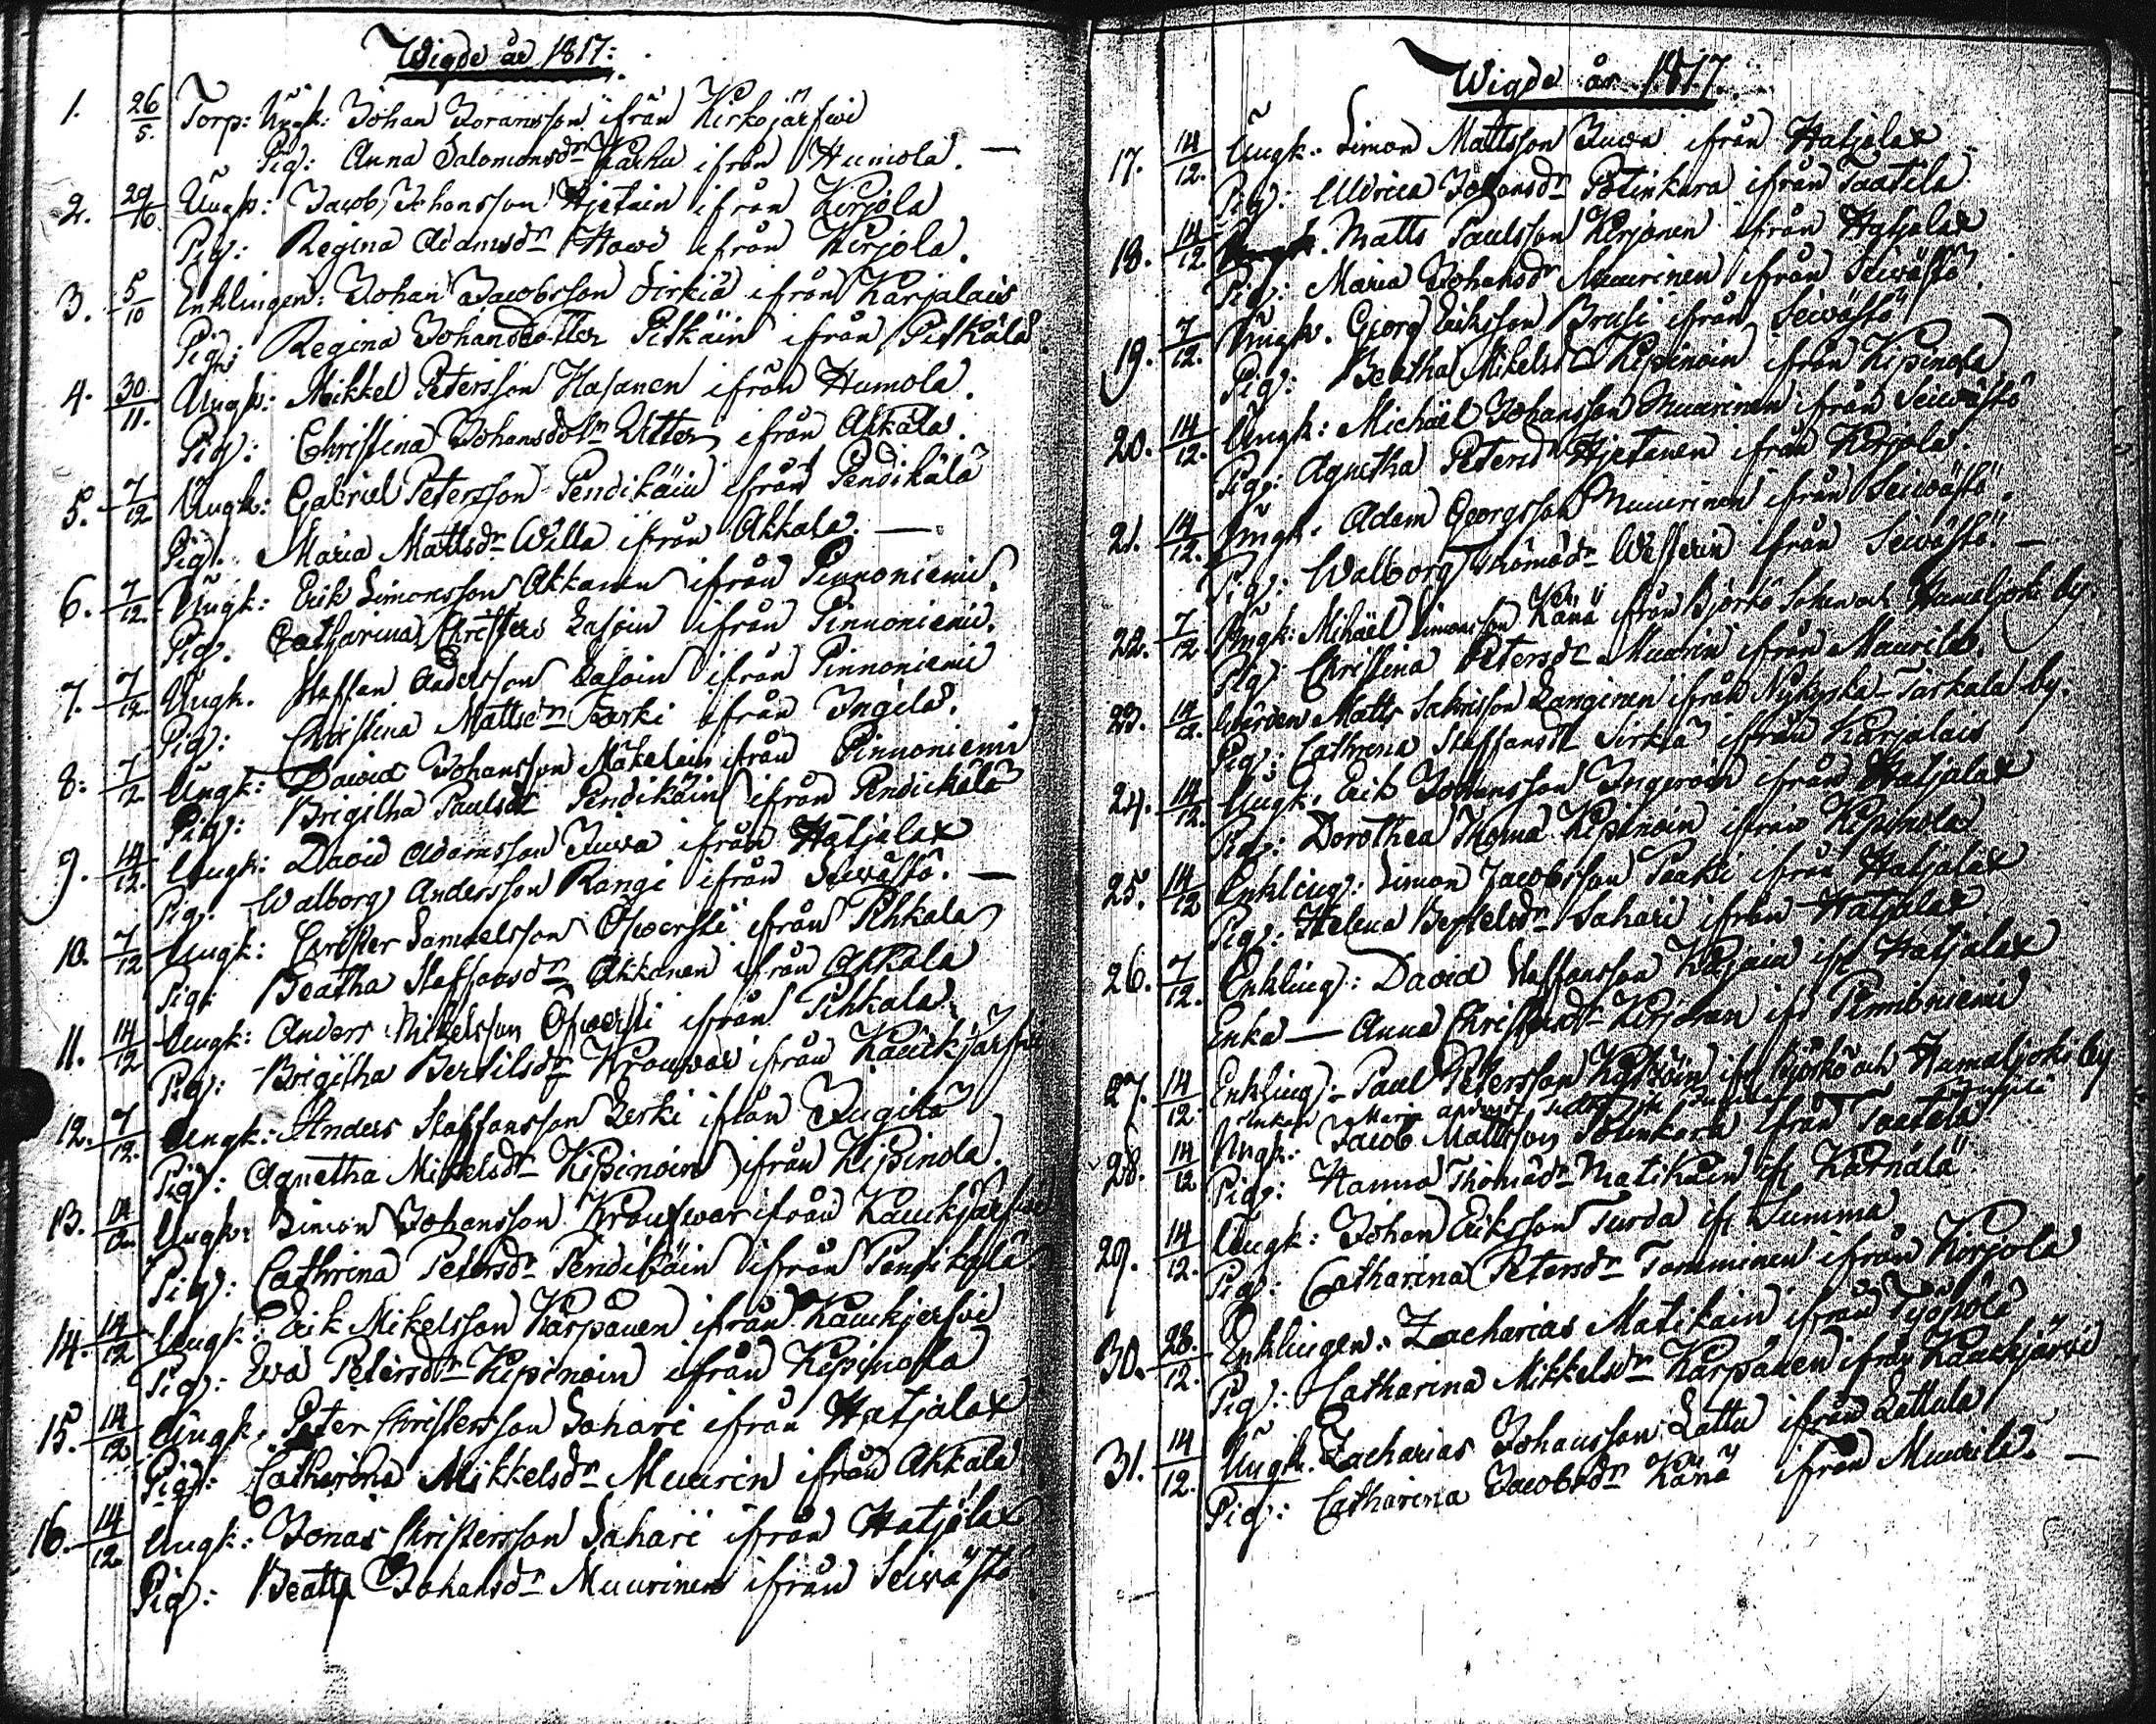 Wigde år 1817:
1. 26/5. Torp: Ungk: Johan Joransson ifrån Kirkojärfwi
Pig: Anna Salomonsdr Karhu ifrån Humola. —
2. 29/6. Ungk: Jacob Johansson Hjetain ifrån Kirjola
Pig: Regina Adamsdr Hawi ifrån Kirjola.
3. 5/10 Enklingen: Johan Jacobsson Sirkiä ifrån Karjalais
Pig: Regina Johansdotter Pitkäin ifrån Pitkälä
4. 30/11. Ungk: Mikkel Petersson Hasanen ifrån Humola.
Pig: Christina Johansdotr Utter ifrån Akkala.
5. 7/12 Ungk: Gabriel Petersson Pendikäin ifrån Pendikälä
Pig: Maria Mattsdr Willa ifrån Akkala. —
6. 7/12. Ungk: Erik Simonsson Akkanen ifrån Pinnoniemi.
Pig. Catharina Christers Lasoin ifrån Pinnoniemi.
7. 7/12. Ungk. Staffan Andersson Lasoin ifrån Pinnoniemi
Pig: Christina Mattsdr ifrån Ingilä.
8: 7/12 Ungk: David Johansson Mäkelain ifrån Pinnoniemi
Pig: Brigitha Paulsdr Pendikäin ifrån Pendickälä
9. 14/12. Ungk: David Adamsson Juwa ifrån Hatjalax
Pig: Walborg Andersson Rangi ifrån Seiwästö. —
10. 7/12 Ungk: Christer Samuelsson ifrån Pihkala
Pig: Beatha Staffansdr Akkanen ifrån Akkala
11. 14/12 Ungk: Anders Mikelsson ifrån Pihkala.
Pig: Brigitha Bertilsdr ifrån Kaukjärfwi
12. 7/12. Ungk: Anders Staffansson Leski ifrån Ingilä
Pig: Agnetha Mikelsdr Kipinoin ifrån Kipinola.
13. 14/12. Ungk: Simon Johansson ifrån Kaukjärfwi
Pig: Cathrina Petersdr Pendikäin ifrån Pendikälä
14. 14/12 Ungk: Erik Mikelsson Karpanen ifrån Kaukjerfwi
Pig: Ewa Petersdr Kipinoin ifrån Kipinola
15. 14/12 Ungk. Peter Christersson Sahari ifrån Hatjalax
Pig: Catharina Mikkelsdr Muurin ifrån Akkala
16. 14/12 Ungk: Jonas Christersson Sahari ifrån Hatjalax
Pig: Beatha Johansdr Muurinen ifrån Seiwästö
Wigde år 1817.
17. 14/12. Ungk: Simon Mattsson Juwa ifrån Hatjalax
Pig: Ulldrica Johansdr Pötinkara ifrån Taatila
18. 14/12 Matts Paulsson Kirjonen ifrån Hatjalax
Pig: Maria Johansdr Muurinen ifrån Seiwästö.
19. 7/12. Ungk. Georg Eriksson Brusi ifrån Seiwästö
Pig: Beatha Mikelsdr Kipinoin ifrån Kipinola
20. 14/12. Ungk: Michaël Johansson Muurinen ifrån Seiwästö
Pig: Agnetha Petersdr Hjetanen ifrån Kirjola
21. 14/12. Ungk. Adam Georgsson Muurinen ifrån Seiwästö.
Pig: Walborg Thomasdr Westerin ifrån Seiwästö. —
22. 7/12 Ungk: Mihäel Simonsson Känä ifrån Björkö Sokn och Humaljoki by.
Pig Christina Petersdr Muurin ifrån Muurila.
23. 14/12. Matts Langinen ifrån Nykyrka Tarkala by.
Pig: Cathrina Staffansdr Sirkiä ifrån Karjalais
24. 14/12. Ungk. Erik Johansson Ingeroin ifrån Hatjalax
Pig: Dorothea Thoma Kipinoin ifrån Kipinola
25. 14/12 Enkling: Simon Jacobsson Paaki ifrån Hatjalax
Pig: Helena Bertelsdr Sahari ifrån Hatjalax.
26. 7/12. Enkling: David Staffansson ifr Hatjalax
Enka — Anna Christersdr ifr Pinnoniemi
27. 14/12. Enkling: Paul Petersson ifr Björkö och Humaljoki by
Enkan Maria
28. 14/12 Ungk: Jacob Mattsson Pötinkara ifrån Taatila
Pig: Hanna Thomasdr Matikain ifr Kärnälä
29. 14/12. Ungk: Johan Eriksson Turda ifr Summa
Pig: Catharina Petersdr Tamminen ifrån Kirjola
30. 28./12. Enklingen: Zacharias Matikain ifrån
Pig: Catharina Mikkelsdr Karpanen ifrån Kaukjärwi
31. 14/12. Ungk. Zacharias Johansson Lattu ifrån Lattula
Pig: Catharina Jacobsdr Känä ifrån Muurila. —